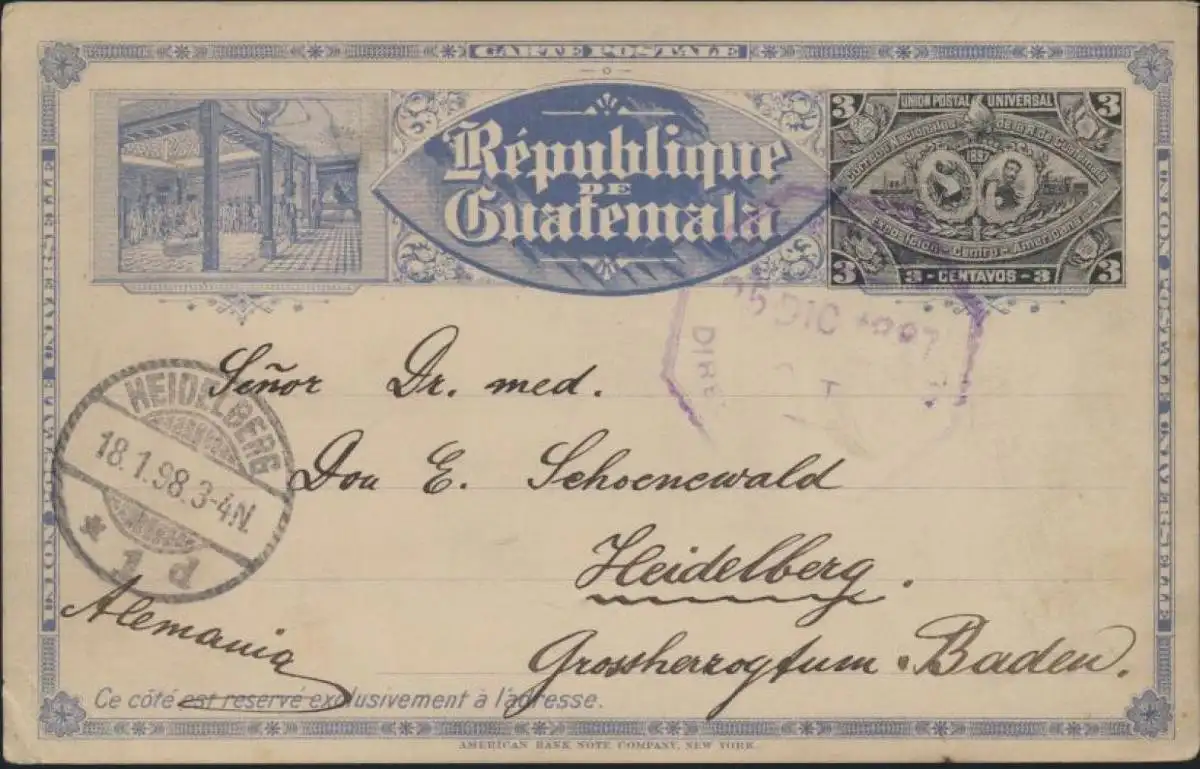 CARTE POSTALE
République
DE
Guatemala
UNION POSTALE UNIVERSELLE
UNION POSTALE UNIVERSELLE
3 UNION POSTAL UNIVERSAL 3
Correos Nacionales de la R. de Guatemala
1897
Exposicion - Centro - Americana
3 3 - CENTAVOS - 3 3
DIC 1897
DIRE
T
Señor Dr. med.
Don E. Schoenewald
Heidelberg.
Grossherzogtum Baden.
Alemania
HEIDELBERG
18.1.98.3-4N.
* 1 d
Ce côté est reservé exclusivement à l'adresse.
AMERICAN BANK NOTE COMPANY, NEW YORK.